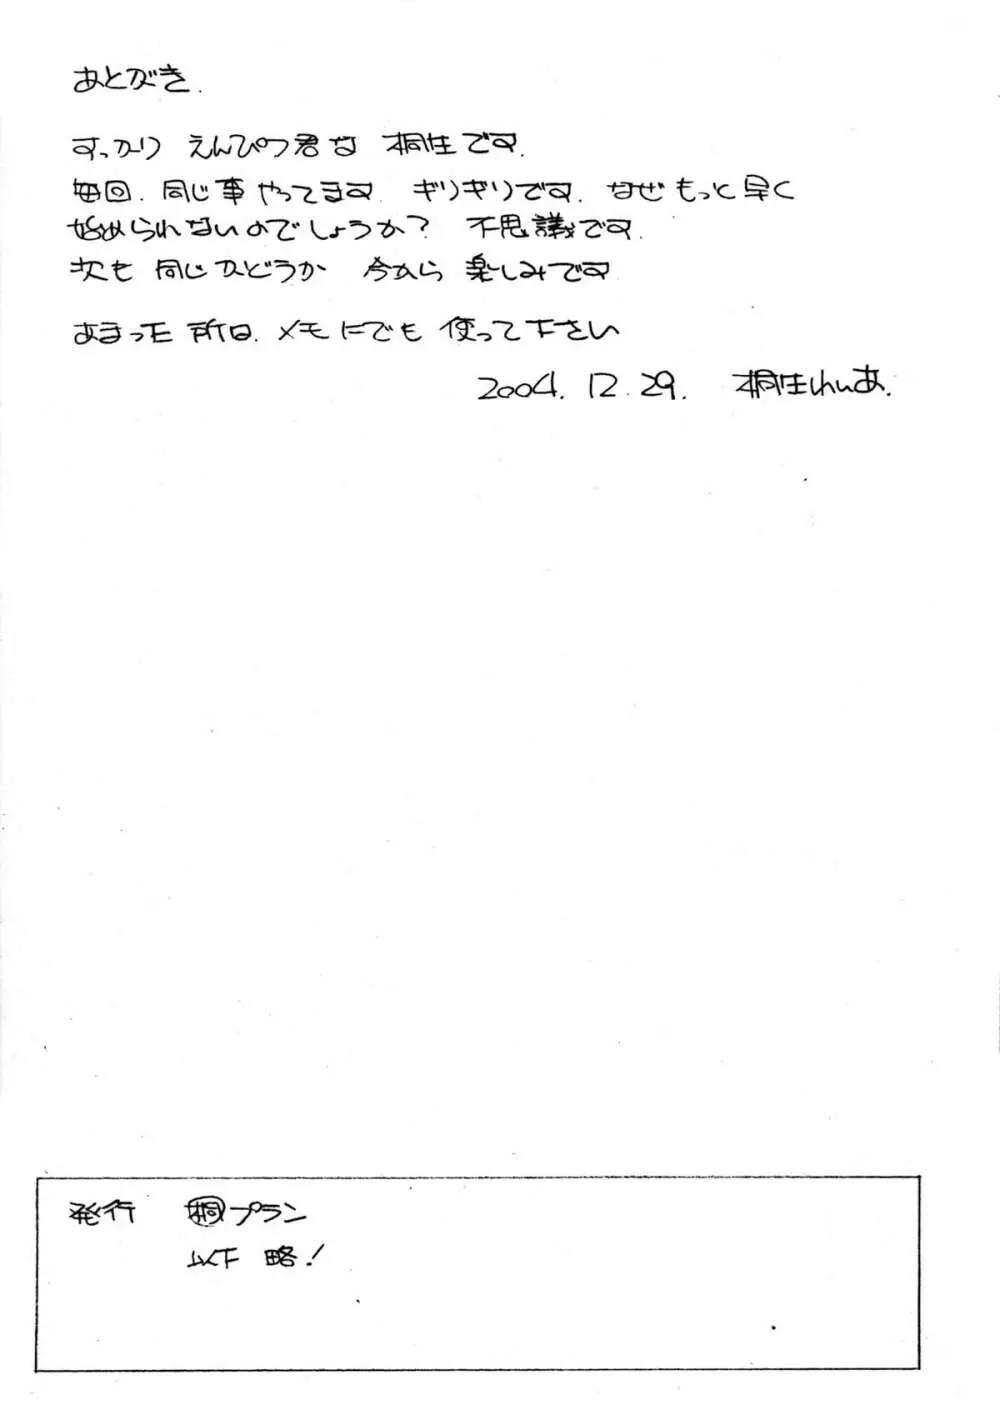 あとがき.
すっかり えんぴつ君な 桐生です.
毎回.同じ事やってます. ギリギリです. なぜもっと早く
始められないのでしょうか? 不思議です.
次も 同じかどうか 今から 楽しみです
あまった所は.メモにでも 使って下さい
2004.12.29. 桐生れいあ.
発行 桐プラン
以下 略!